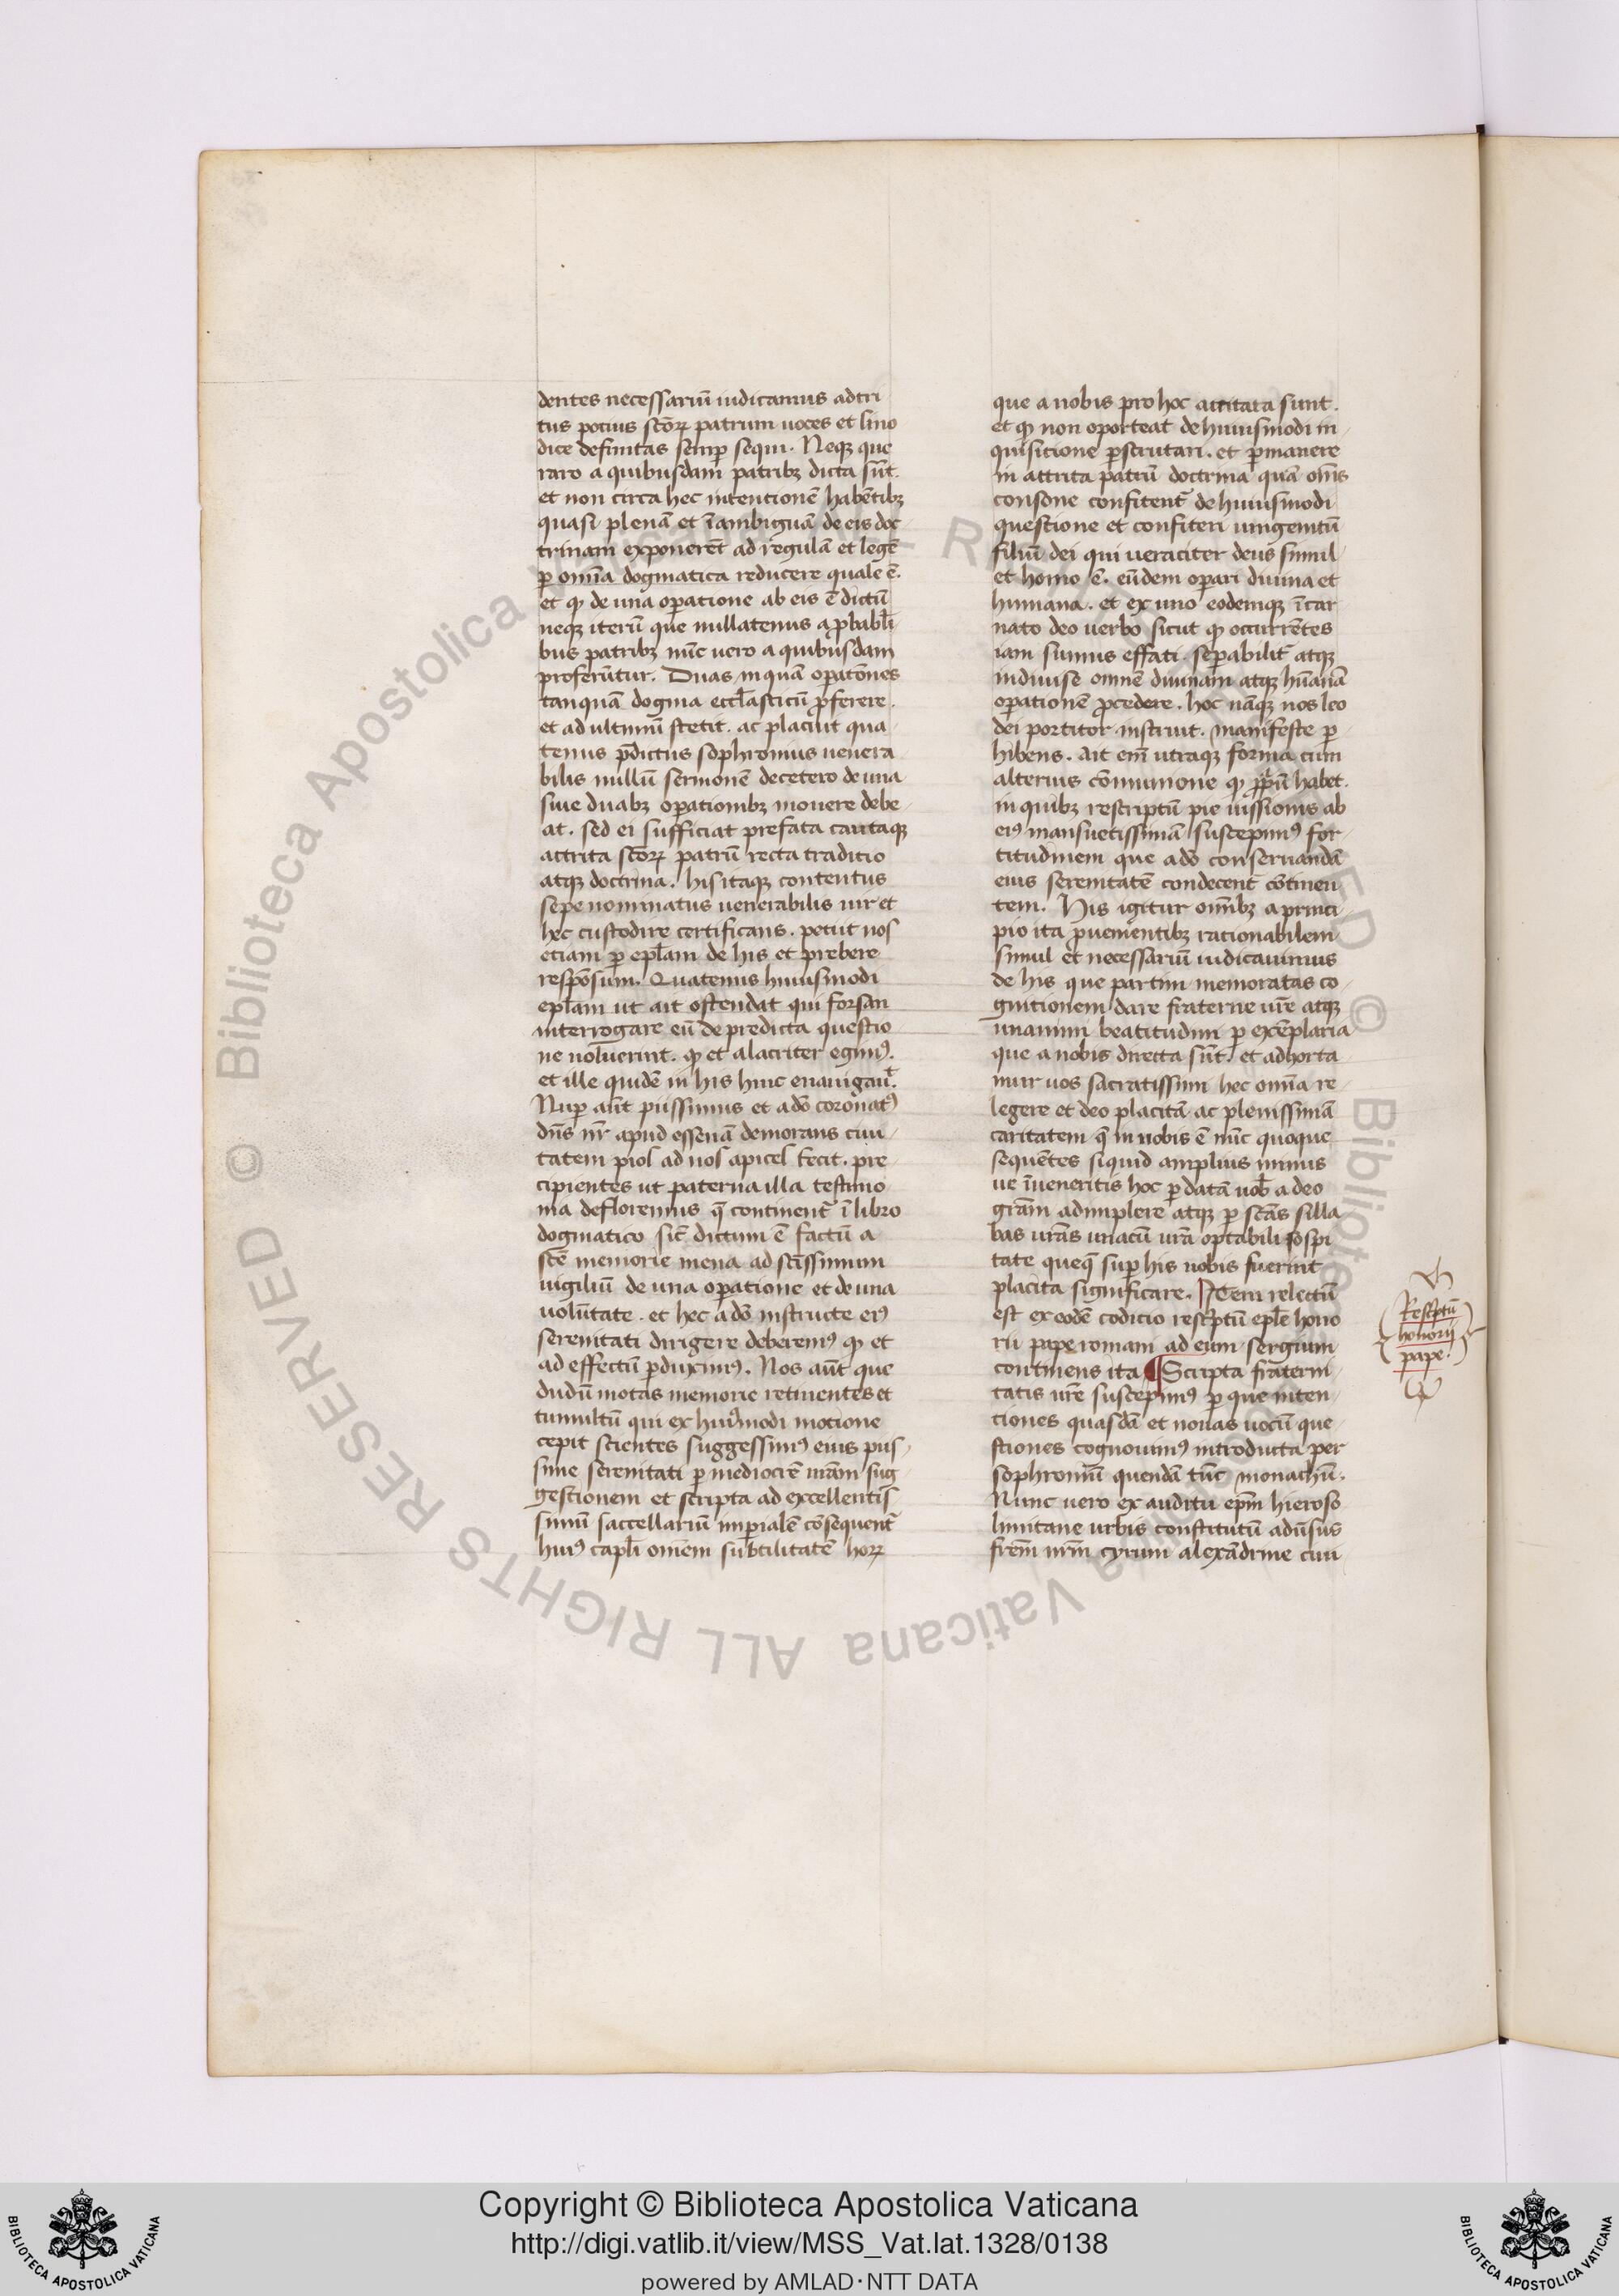 dentes necessariū iudicamus adtri
tus potius sc̄oꝝ patrum uoces et sino
dice definitas semꝑ sequi. Neqꝫ que
raro a quibusdam patribꝫ dicta sūt.
et non circa hec intentionē habētibꝫ
quasi plenā et īambiguā de eis doc
trinam exponerēt ad regulā et legē
ꝑ om̄ia dogmatica reducere quale ē.
et ꝙ de una oꝑatione ab eis ē dictū
neqꝫ iterū que nullatenus a ꝓbabl̄i
bus patribꝫ nūc uero a quibusdam
proferūtur. Duas inquā oꝑatōnes
tanquā dogma eccl̄asticū ꝓferere.
et ad ultimū stetit. ac placuit qua
tenus p̄dictus sophronius uenera
bilis nullū sermonē decetero de una
siue duabꝫ oꝑationibꝫ mouere debe
at. sed ei sufficiat prefata cautaqꝫ
attrita sc̄oꝝ patrū recta traditio
atqꝫ doctrina. his itaqꝫ contentus
sepe nominatus uenerabilis uir et
hec custodire certificans. petiit nos
etiam ꝑ ep̄lam de his et prebere
respōsum. Quatenus huiusmodi
ep̄lam ut ait ostendat qui forsan
interrogare eū de predicta questio
ne uoluerint. ꝙ et alacriter egimꝰ.
et ille quidē in his hinc enauigauͭ.
Nuꝑ aūt piissimus et a dō coronatꝰ
dn̄s nr̄ apud essenā demorans ciui
tatem pios ad nos apices fecit. pre
cipientes ut paterna illa testimo
nia defloremus q̄ continent̄ ī libro
dogmatico sic̄ dictum ē factū a
sc̄e memorie mena ad sc̄issimum
uigiliū de una oꝑatione et de una
uolūtate. et hec a dō instructe eiꝰ
serenitati dirigere deberemꝰ ꝙ et
ad effectū ꝑduximꝰ. Nos aūt que
dudū motas memorie retinentes et
tumultū qui ex huiꝰmodi motione
cepit scientes suggessimꝰ eius piis
sime serenitati ꝑ mediocrē nr̄am sug
gestionem et scripta ad excellentis
simū saccellariū imꝑialē cōsequent̄
huiꝰ capl̄i omēm subtilitatē horꝝ
que a nobis pro hoc attitata sunt.
et ꝙ non oporteat de huiusmodi in
quisicione ꝑscrutari. et ꝑmanere
in attrita patrū doctrina quā om̄s
consone confitent̄ de huiusmodi
questione et confiteri unigenitū
filiū dei qui ueraciter deus simul
et homo ē. eūdem oꝑari diuina et
humana. et ex uno eodemqꝫ īcar
nato deo uerbo sicut ꝙ occurrētes
iam sumus effati. seꝑabilit̄ atqꝫ
indiuise omnē diuinam atqꝫ hūanā
oꝑationē ꝓcedere. hoc nāqꝫ nos leo
dei portitor instruit. manifeste ꝑ
hibens. Ait em̄ utraqꝫ forma cum
alterius cōmunione ꝙ ꝓpͥū habet.
in quibꝫ rescriptū pie iussionis ab
eiꝰ mansuetissimā suscepimꝰ for
titudinem que a dō conseruandā
eius serenitatē condecent cōtinen
tem. His igitur om̄ibꝫ a princi
pio ita ꝓuenientibꝫ rationabilem
simul et necessariū iudicauimus
de his que partim memoratas co
gnitionem dare fraterne ur̄e atqꝫ
unanimi beatitudini ꝑ exēplaria
que a nobis directa sūt. et adhorta
mur uos sacratissimi hec om̄ia re
legere et deo placitā ac plenissimā
caritatem q̄ in uobis ē nūc quoque
sequētes siquid amplius minus
ue īueneritis hoc ꝑ datā uob̄ a deo
gr̄am adimplere atqꝫ ꝑ sc̄as silla
bas ur̄as unacū ur̄a optabili sospi
tate queq̄ suꝑ his uobis fuerint
placita significare. Item relectū
est ex eodē codicio resc̄ptū epl̄e hono
rii pape romani ad eum sergium
continens ita ¶ Scripta fraterni
tatis ur̄e suscepimꝰ ꝑ que inten
tiones quasdā et nouas uocū que
stiones cognouimꝰ introducta per
sophroniū quendā tūc monachū.
Nunc uero ex auditu ep̄m hieroso
limitane urbis constitutū adūsus
frem̄ nrm̄ cyrum alexādrine ciui
Resc̄ptū
honorij
pape.
Copyright © Biblioteca Apostolica Vaticana
http://digi.vatlib.it/view/MSS_Vat.lat.1328/0138
powered by AMLAD·NTT DATA
BIBLIOTECA APOSTOLICA VATICANA
BIBLIOTECA APOSTOLICA VATICANA
© Biblioteca Apostolica Vaticana ALL RIGHTS RESERVED © Biblioteca Apostolica Vaticana ALL RIGHTS RESERVED